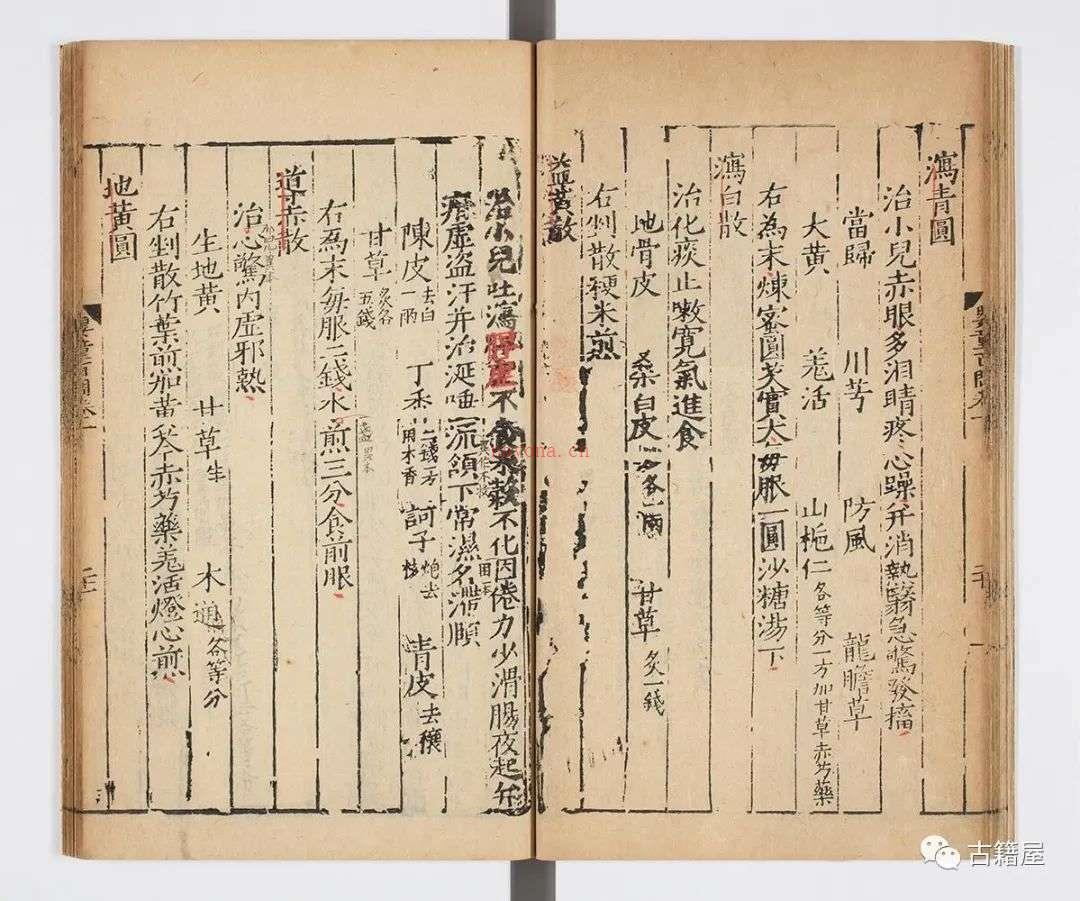 瀉青圓
治小兒赤眼多淚睛疼心躁并消熱翳急驚發搐
當歸 川芎 防風 龍膽草
大黃 羗活 山梔仁各等分一方加甘草赤芍藥
右為末煉蜜圓芡實大每服一圓沙糖湯下
瀉白散
治化痰止嗽寬氣進食
地骨皮 桑白皮各一兩 甘草炙一錢
右剉散粳米煎
益黃散
治小兒吐瀉脾虛不食米穀不化因倦力少滑腸夜起并
疳虛盗汗并治涎唾流頷下常濕名滯頤
陳皮去白一兩 丁香二錢一方用木香 訶子炮去核 青皮去穰
甘草炙各五錢
右爲末每服二錢水一盞煎三分食前服
導赤散
治心驚內虛邪熱
生地黃 甘草生 木通各等分
右剉散竹葉煎加黃芩赤芍藥羗活燈心煎
地黃圓
古籍屋